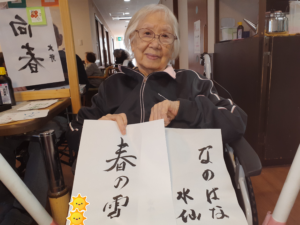 向
春
春の雪
なのはな
水仙